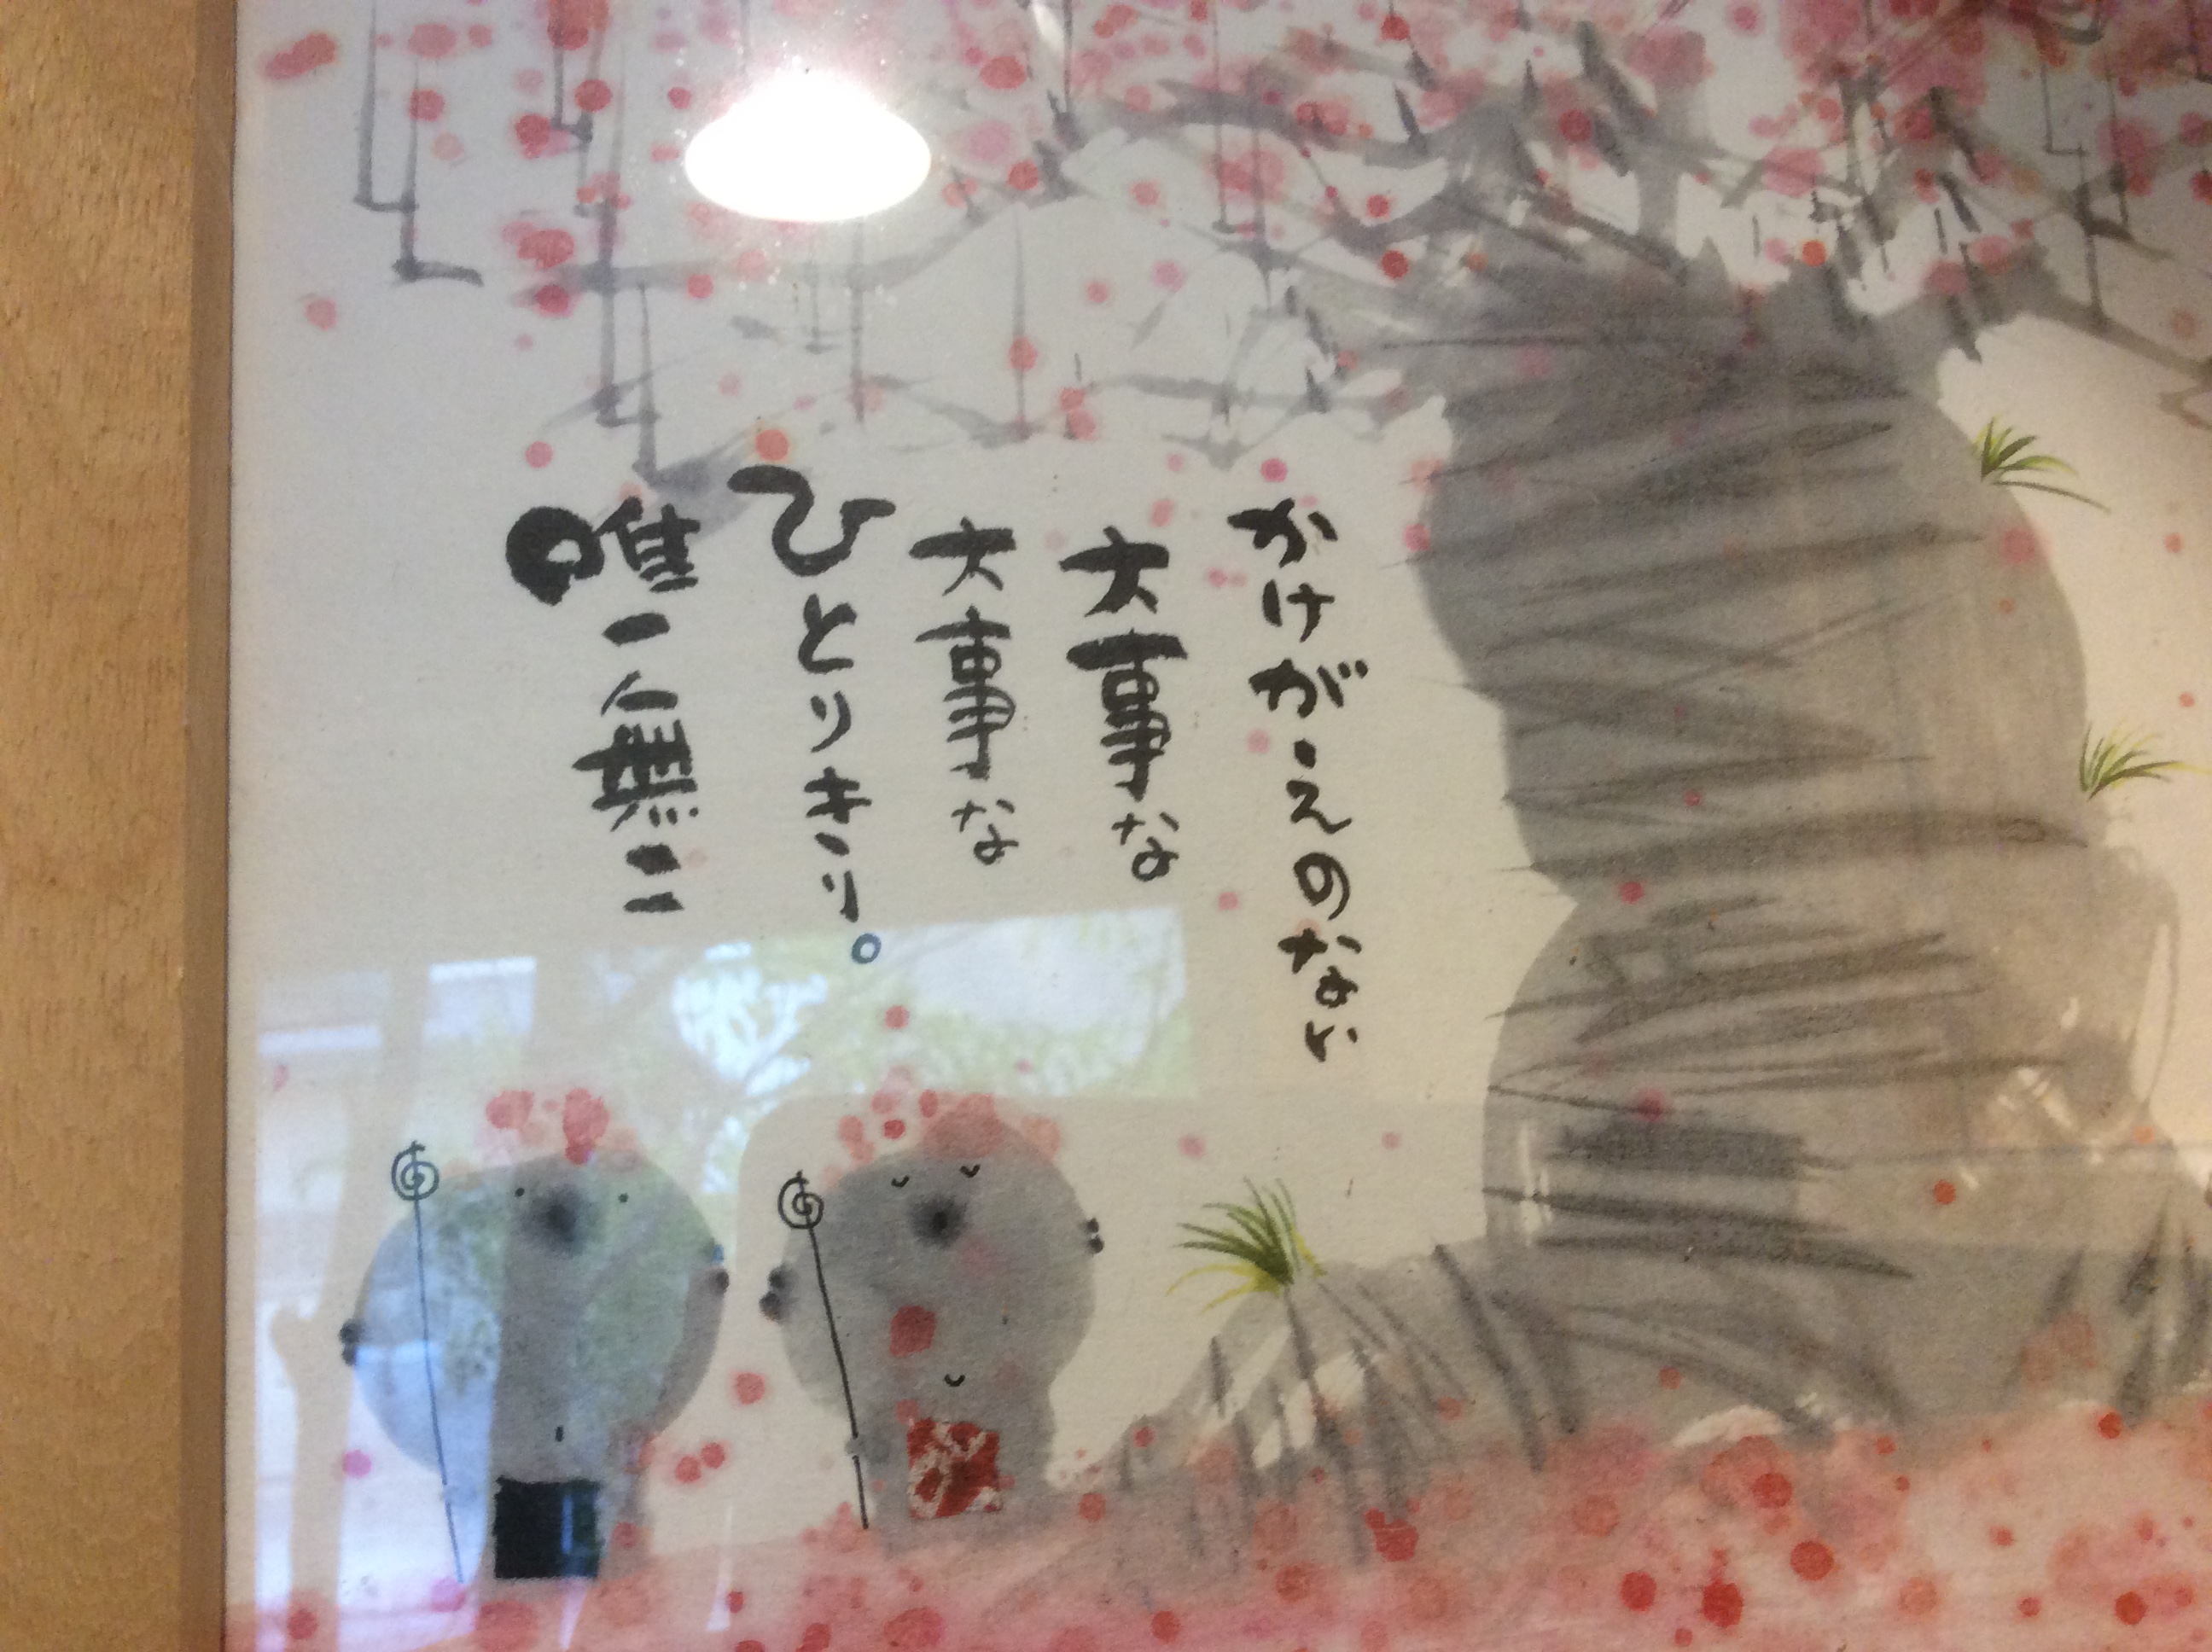 かけがえのない
大事な
大事な
ひとりきり。
唯一人無二